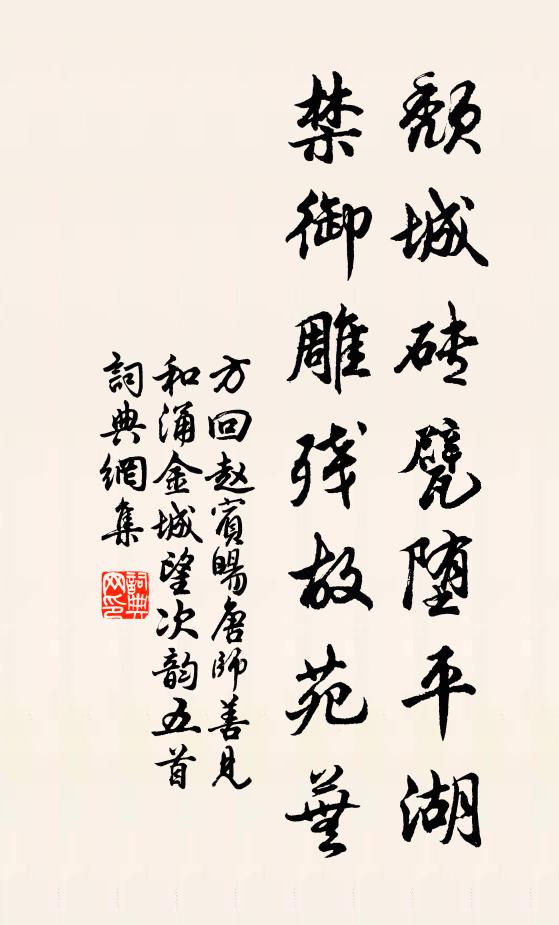 颓城砖甓堕平湖
禁御雕残故苑芜
方回赵宾旸唐师善见
和涌金城望次韵五首
词典网集
词典网印